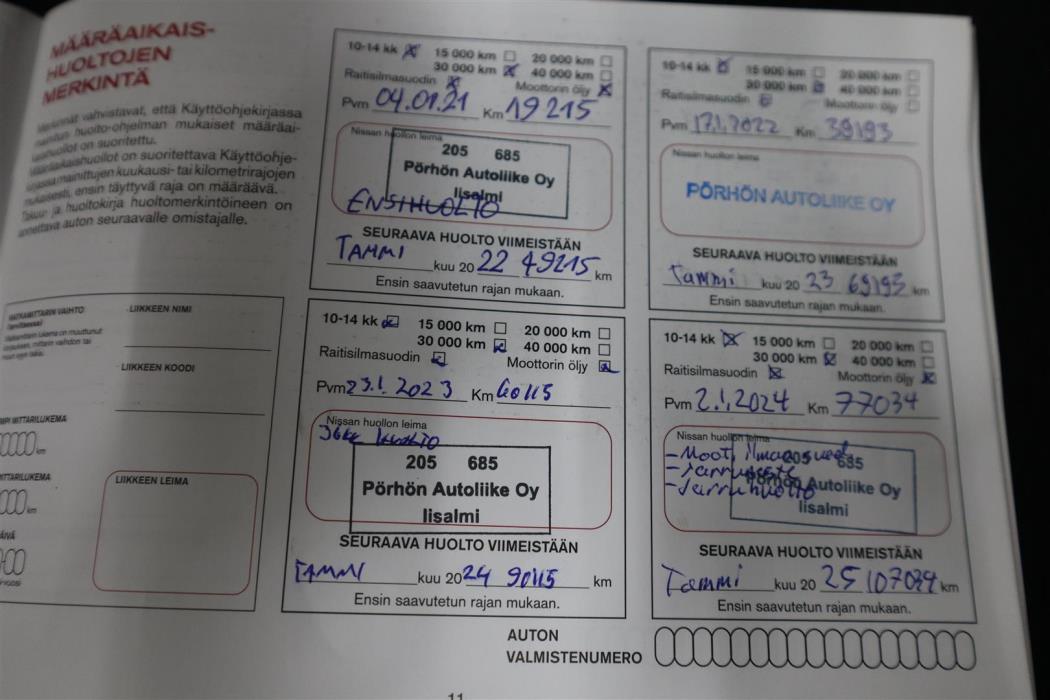 MÄÄRÄAIKAIS-
HUOLTOJEN
MERKINTÄ
Merkinnät vahvistavat, että Käyttöohjekirjassa
huolto-ohjelman mukaiset määräai-
on suoritettu.
Määräaikaishuollot on suoritettava Käyttöohje-
kirjassa mainittujen kuukausi- tai kilometrirajojen
mukaisesti, ensin täyttyvä raja on määräävä.
Takuu- ja huoltokirja huoltomerkintöineen on
annettava auton seuraavalle omistajalle.
10-14 kk 15 000 km 20 000 km
30 000 km 40 000 km
Raitisilmasuodin Moottorin öljy
Pvm 04.01.21 Km 19215
Nissan huollon leima
205 685
Pörhön Autoliike Oy
Iisalmi
ENSIHUOLTO
SEURAAVA HUOLTO VIIMEISTÄÄN
TAMMI kuu 20 22 49215 km
Ensin saavutetun rajan mukaan.
10-14 kk 15 000 km 20 000 km
30 000 km 40 000 km
Raitisilmasuodin Moottorin öljy
Pvm 17.1.2022 Km 39193
Nissan huollon leima
PÖRHÖN AUTOLIIKE OY
SEURAAVA HUOLTO VIIMEISTÄÄN
Tammi kuu 20 23 69193 km
Ensin saavutetun rajan mukaan.
MATKAMITTARIN VAIHTO
LIIKKEEN NIMI
LIIKKEEN KOODI
MITTARILUKEMA
km
MITTARILUKEMA
km
LIIKKEEN LEIMA
10-14 kk 15 000 km 20 000 km
30 000 km 40 000 km
Raitisilmasuodin Moottorin öljy
Pvm 23.1.2023 Km 60115
Nissan huollon leima
36kk huolto
205 685
Pörhön Autoliike Oy
Iisalmi
SEURAAVA HUOLTO VIIMEISTÄÄN
TAMMI kuu 20 24 90115 km
Ensin saavutetun rajan mukaan.
10-14 kk 15 000 km 20 000 km
30 000 km 40 000 km
Raitisilmasuodin Moottorin öljy
Pvm 2.1.2024 Km 77034
Nissan huollon leima
205 685
- Moot.
- Jarruneste
- Jarruhuolto
Pörhön Autoliike Oy
Iisalmi
SEURAAVA HUOLTO VIIMEISTÄÄN
Tammi kuu 20 25 107034 km
Ensin saavutetun rajan mukaan.
AUTON
VALMISTENUMERO
11